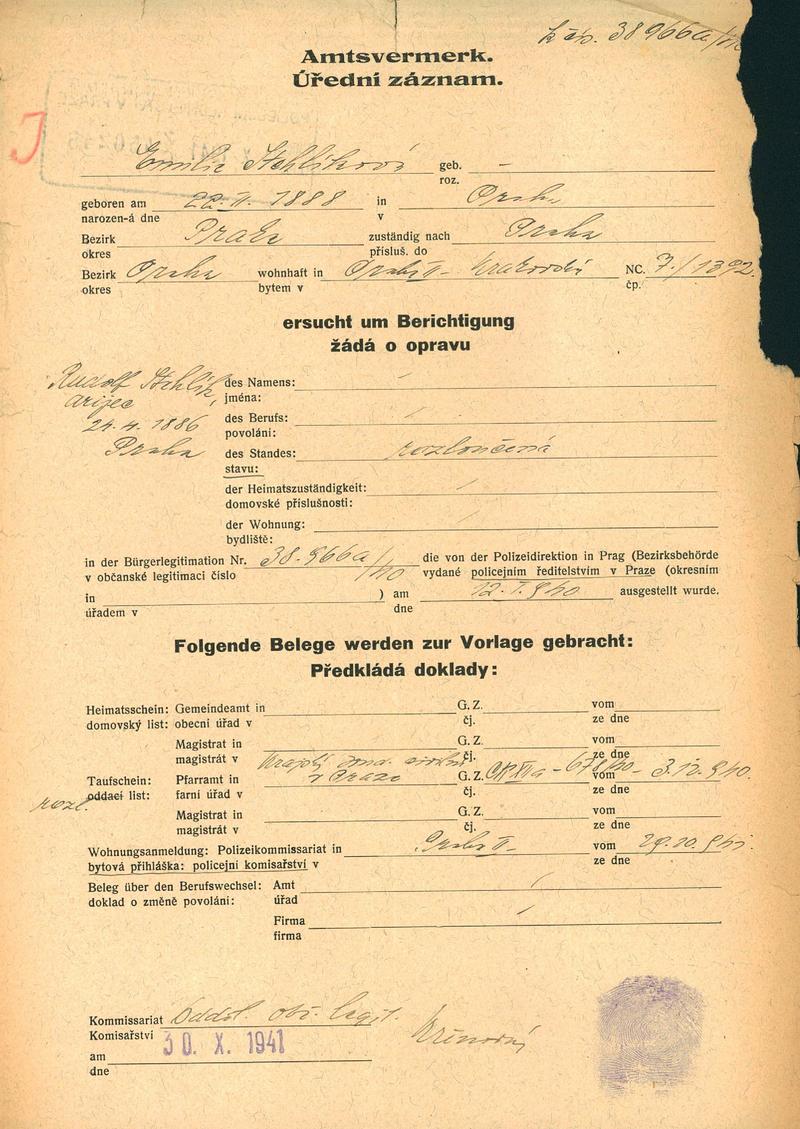 k čís. 38966a/40
Amtsvermerk.
Úřední záznam.
J
Emilie Stehlíková geb. –
roz.
geboren am 22. II. 1888 in Praha
narozen-á dne v
Bezirk Praha zuständig nach Praha
okres přísluš. do
Bezirk Praha wohnhaft in Praha II – Krakovská NC. 7./1392.
okres bytem v čp.
ersucht um Berichtigung
žádá o opravu
Rudolf Stehlík, des Namens: –
arijec jména:
24. 4. 1886 des Berufs: /
povolání:
Praha des Standes: rozloučená
stavu:
der Heimatszuständigkeit: /
domovské příslušnosti:
der Wohnung: /
bydliště:
in der Bürgerlegitimation Nr. 38.966a/40 die von der Polizeidirektion in Prag (Bezirksbehörde
v občanské legitimaci číslo vydané policejním ředitelstvím v Praze (okresním
in ) am 12. I. 940 ausgestellt wurde.
úřadem v dne
Folgende Belege werden zur Vorlage gebracht:
Předkládá doklady:
Heimatsschein: Gemeindeamt in G. Z. vom
domovský list: obecní úřad v čj. ze dne
Magistrat in G. Z. vom
magistrát v čj. ze dne
Krajský soud civilní
Taufschein: Pfarramt in v Praze G. Z. vom 3. 12. 940.
rozl. oddací list: farní úřad v čj. ze dne
Magistrat in G. Z. vom
magistrát v čj. ze dne
Wohnungsanmeldung: Polizeikommissariat in Praha II – vom 29. 10. 941.
bytová přihláška: policejní komisařství v ze dne
Beleg über den Berufswechsel: Amt /
doklad o změně povolání: úřad
Firma /
firma
Kommissariat Odděl. obč. legit.
Komisařství
am 30. X. 1941
dne